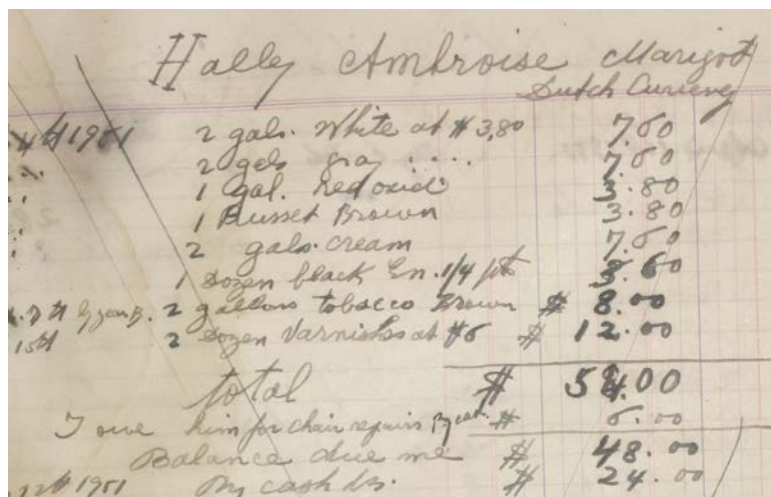 Hally Ambroise Marigot
Dutch Curiency
4th 1951 2 gals. White at $3,80 7.60
2 gals gray .... 7.60
1 Gal. Red oxid 3.80
1 Russet Brown 3.80
2 gals. cream 7.60
1 Dozen black En. 1/4 pts 3.60
2 gallons tobacco Brown $ 8.00
15th 2 Dozen Varnishes at $6 $ 12.00
total $ 54.00
I owe him for chair repairs $ 6.00
Balance due me $ 48.00
1951 By cash $ 24.00